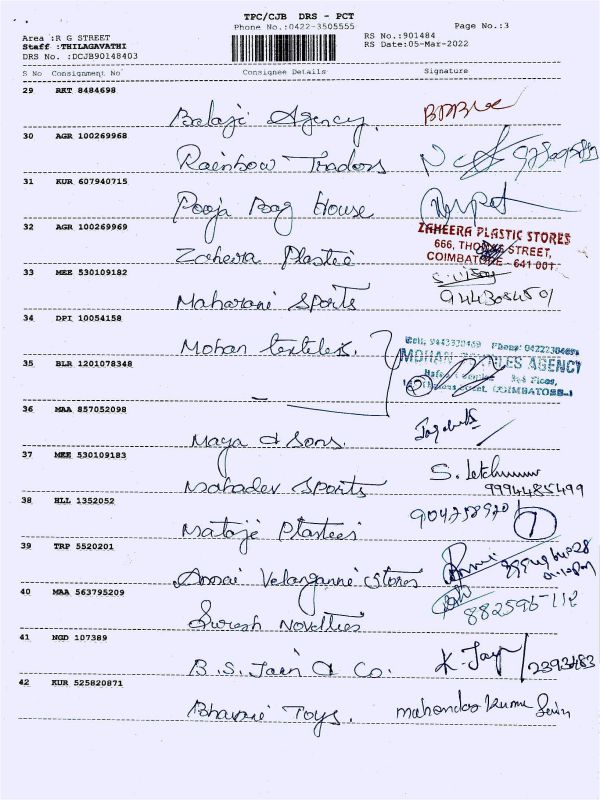 TPC/CJB DRS - PCT
Phone No.:0422-3505555
Page No.:3
Area :R G STREET
Staff :THILAGAVATHI
DRS No. :DCJB90148403
RS No.:901484
RS Date:05-Mar-2022
S No Consignment No Consignee Details Signature
29 RKT 8484698
Balaji Agency.
30 AGR 100269968
Rainbow Traders
31 KUR 607940715
Pooja Bag House
32 AGR 100269969
ZAHEERA PLASTIC STORES
666, THOMAS STREET,
COIMBATORE - 641 001
Zaheera Plastic
33 MEE 530109182
Maharani Sports
34 DPI 10054158
Mohan textiles.
MOHAN TEXTILES AGENCY
COIMBATORE-1
35 BLR 1201078348
36 MAA 857052098
Maya & Sons.
37 MEE 530109183
Mahadev Sports
S.
9994485499
38 HLL 1352052
Mataji Plastics
39 TRP 5520201
Annai Velanganni Stores
40 MAA 563795209
Suresh Novelties
41 NGD 107389
B.S. Jain & Co.
K. Jay
2393483
42 KUR 525820871
Bhavani Toys.